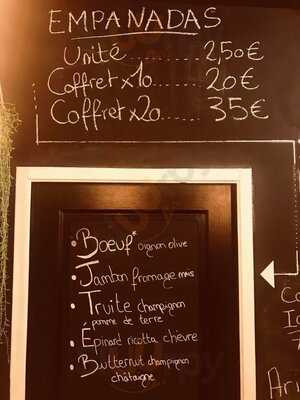 EMPANADAS
Unité ........ 2,50€
Coffret x10 ...... 20€
Coffret x20 ...... 35€
• Boeuf* oignon olive
• Jambon fromage maïs
• Truite champignon
pomme de terre
• Épinard ricotta chèvre
• Butternut champignon
châtaigne